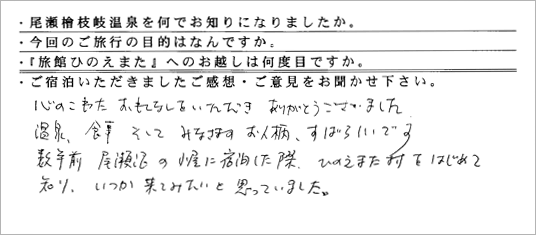 ・尾瀬檜枝岐温泉を何でお知りになりましたか。
・今回のご旅行の目的はなんですか。
・『旅館ひのえまた』へのお越しは何度目ですか。
・ご宿泊いただきましたご感想・ご意見をお聞かせ下さい。
心のこもった おもてなしをいただき ありがとうございました
温泉、食事 そして みなさまの お人柄、すばらしいです
数年前 尾瀬沼の小屋に宿泊した際、ひのえまた村をはじめて
知り、いつか来てみたいと思っていました。